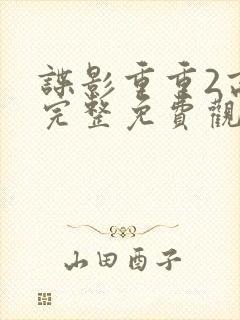 諜影重重2
完整免費觀
山田酉子